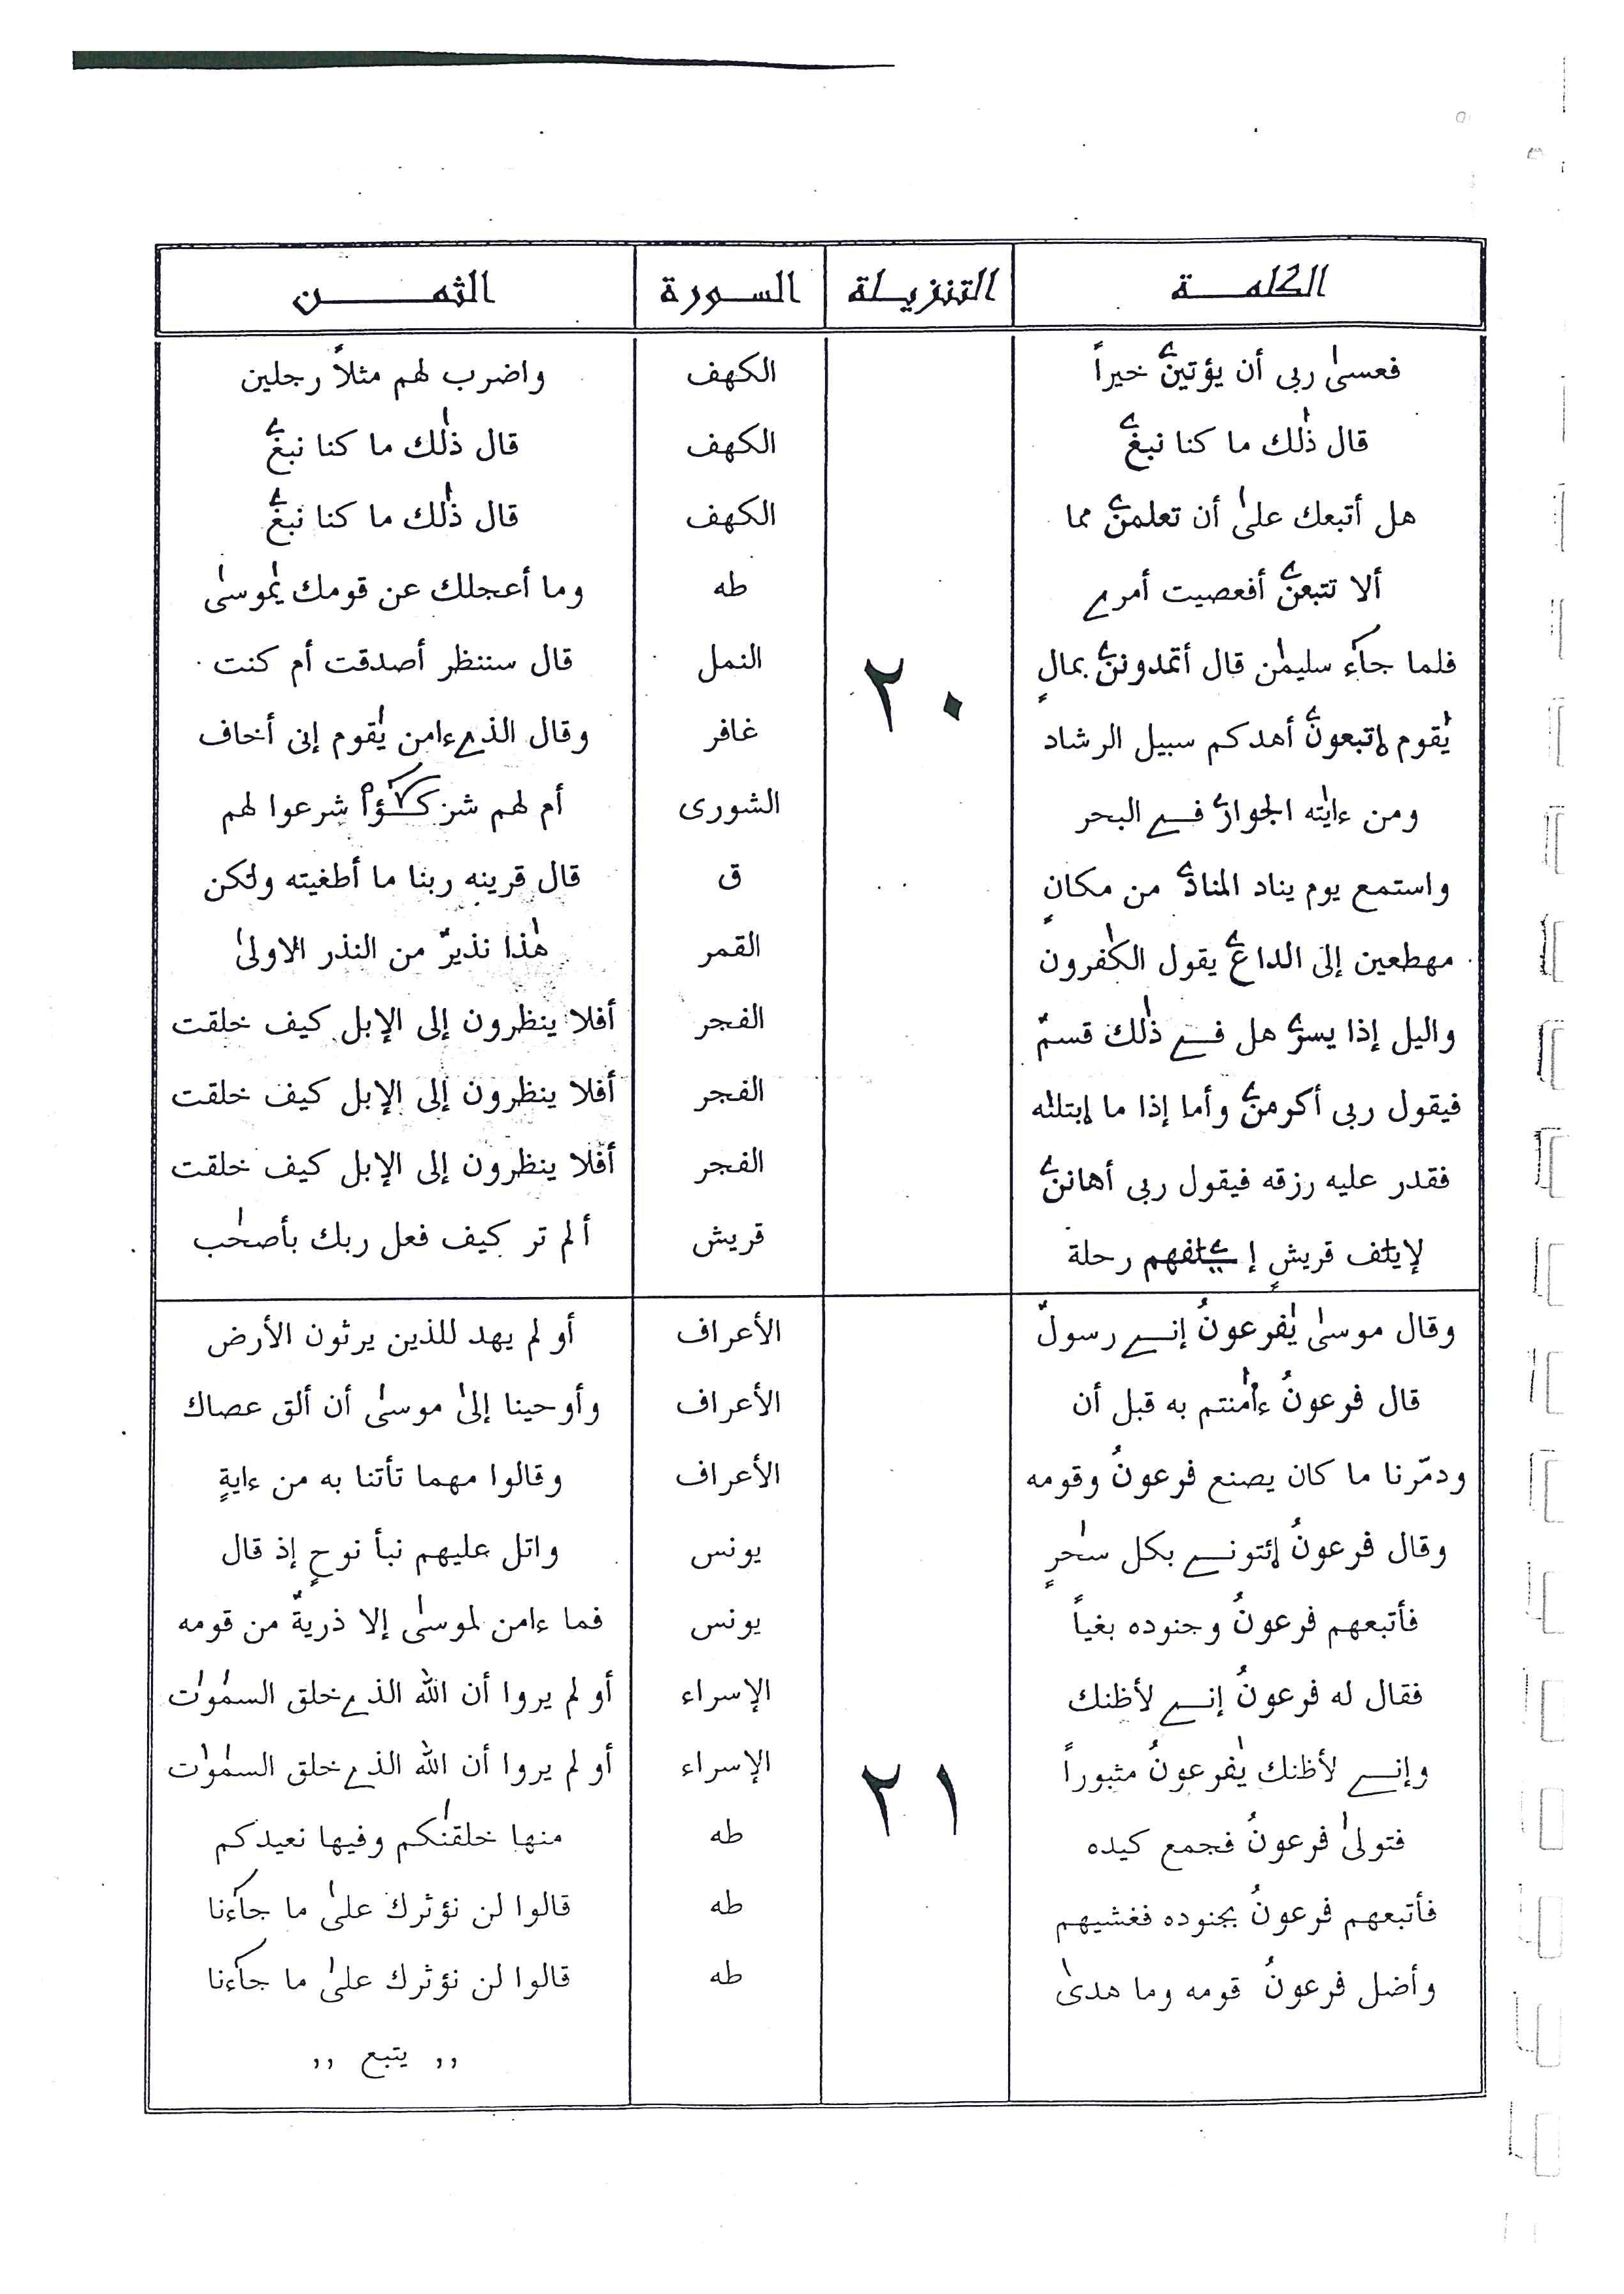 الكلمـــة التنزيـلة الســورة الثمـــــن
فعسىٰ ربى أن يؤتينۦ خيراً الكهف واضرب لهم مثلاً رجلين
قال ذٰلك ما كنا نبغۦ الكهف قال ذٰلك ما كنا نبغۦ
هل أتبعك علىٰ أن تعلمنۦ مما الكهف قال ذٰلك ما كنا نبغۦ
ألا تتبعنۦ أفعصيت أمرے طه وما أعجلك عن قومك يٰموسىٰ
فلما جآء سليمٰن قال أتمدوننۦ بمالٍ ٢٠ النمل قال سننظر أصدقت أم كنت
يٰقوم إتبعونۦ أهدكم سبيل الرشاد غافر وقال الذے ءامن يٰقوم إنى أخاف
ومن ءايٰته الجوارۦ فــے البحر الشورى أم لهم شركـٰٓؤا شرعوا لهم
واستمع يوم يناد المنادۦ من مكانٍ ق قال قرينه ربنا ما أطغيته ولٰكن
مهطعين إلى الداعۦ يقول الكٰفرون القمر هٰذا نذيرٌ من النذر الاولىٰ
واليل إذا يسرۦ هل فــے ذٰلك قسمٌ الفجر أفلا ينظرون إلى الإبل كيف خلقت
فيقول ربى أكرمنۦ وأما إذا ما إبتلىٰه الفجر أفلا ينظرون إلى الإبل كيف خلقت
فقدر عليه رزقه فيقول ربى أهاننۦ الفجر أفلا ينظرون إلى الإبل كيف خلقت
لإيلٰف قريشٍ إۦلٰفهم رحلة قريش ألم تر كيف فعل ربك بأصحٰب
وقال موسىٰ يٰفرعونُ إنــے رسولٌ الأعراف أو لم يهد للذين يرثون الأرض
قال فرعونُ ءاٰمنتم به قبل أن الأعراف وأوحينا إلىٰ موسىٰ أن ألق عصاك
ودمّرنا ما كان يصنع فرعونُ وقومه الأعراف وقالوا مهما تأتنا به من ءايةٍ
وقال فرعونُ إئتونــے بكل سٰحرٍ يونس واتل عليهم نبأ نوحٍ إذ قال
فأتبعهم فرعونُ وجنوده بغياً يونس فما ءامن لموسىٰ إلا ذريةٌ من قومه
فقال له فرعونُ إنــے لأظنك الإسراء أو لم يروا أن الله الذے خلق السمٰوٰت
وإنــے لأظنك يٰفرعونُ مثبوراً ٢١ الإسراء أو لم يروا أن الله الذے خلق السمٰوٰت
فتولىٰ فرعونُ فجمع كيده طه منها خلقنٰكم وفيها نعيدكم
فأتبعهم فرعونُ بجنوده فغشيهم طه قالوا لن نؤثرك علىٰ ما جآءنا
وأضل فرعونُ قومه وما هدىٰ طه قالوا لن نؤثرك علىٰ ما جآءنا
,, يتبع ,,